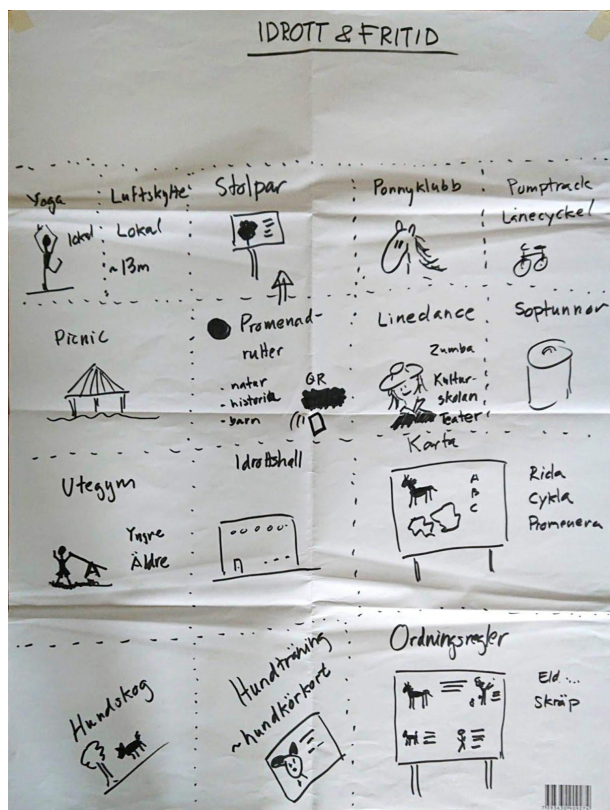 IDROTT & FRITID
Yoga
lokal
Luftskytte
Lokal
~13m
Stolpar
Ponnyklubb
Pumptrack
Lånecyckel
Picnic
Promenad-
rutter
- natur
- historik
- barn
QR
Linedance
Zumba
Kultur-
skolan
Teater
Soptunnor
Utegym
Yngre
Äldre
Idrottshall
Karta
A
B
C
Rida
Cykla
Promenera
Hundskog
Hundträning
~hundkörkort
Ordningsregler
Eld...
Skräp